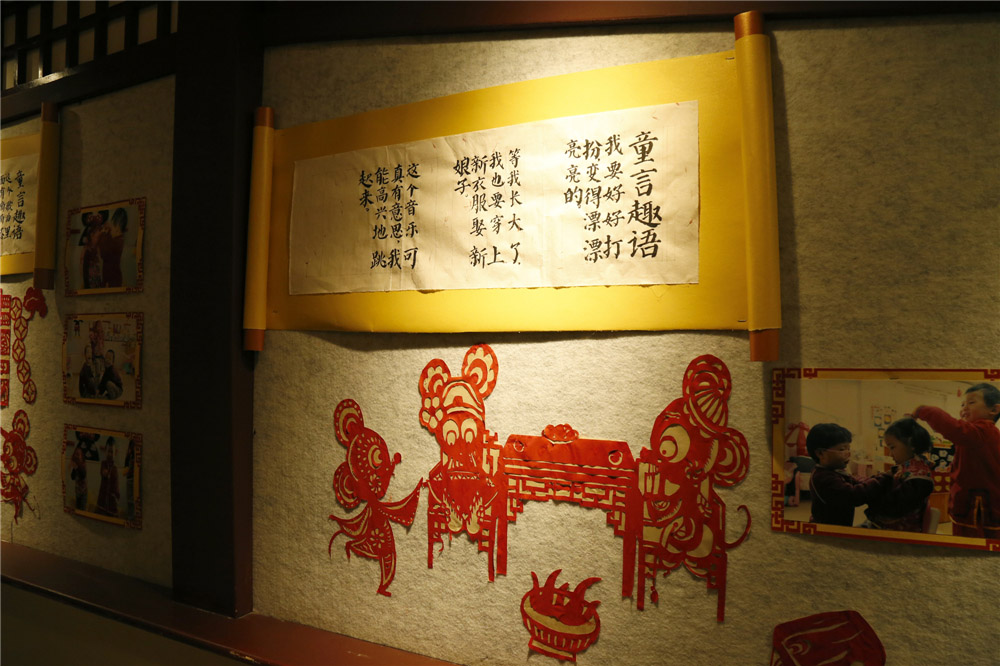 童言趣语
我要好好打
扮变得漂漂
亮亮的
等我长大了
我也要穿上
新衣服娶新
娘子。
这个音乐可
真有意思，我
能高兴地跳
起来。
童言趣语